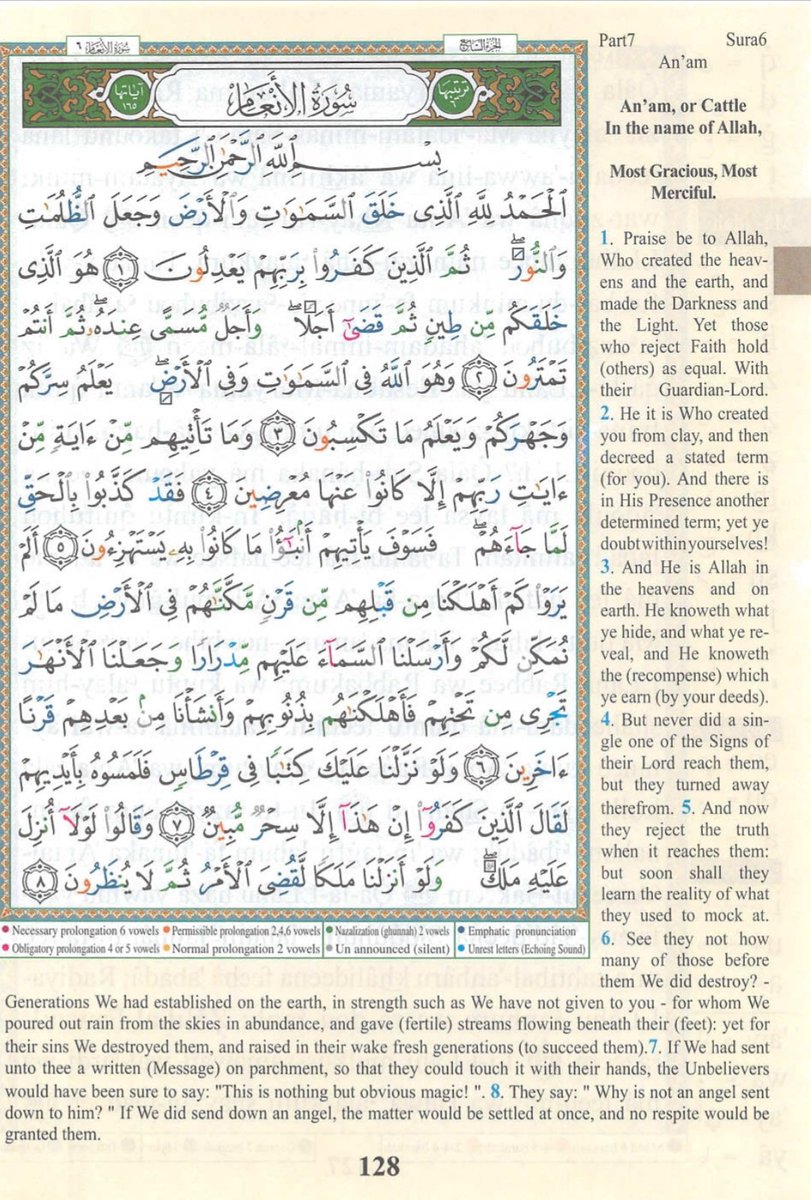 سورة الأنعام ٦
الجزء السابع
آياتها ١٦٥
سُورَةُ الأَنْعَامِ
ترتيبها ٦
بِسْمِ ٱللَّهِ ٱلرَّحْمَٰنِ ٱلرَّحِيمِ
ٱلْحَمْدُ لِلَّهِ ٱلَّذِى خَلَقَ ٱلسَّمَٰوَٰتِ وَٱلْأَرْضَ وَجَعَلَ ٱلظُّلُمَٰتِ
وَٱلنُّورَ ۖ ثُمَّ ٱلَّذِينَ كَفَرُوا۟ بِرَبِّهِمْ يَعْدِلُونَ ١ هُوَ ٱلَّذِى
خَلَقَكُم مِّن طِينٍ ثُمَّ قَضَىٰٓ أَجَلًا ۖ وَأَجَلٌ مُّسَمًّى عِندَهُۥ ۖ ثُمَّ أَنتُمْ
تَمْتَرُونَ ٢ وَهُوَ ٱللَّهُ فِى ٱلسَّمَٰوَٰتِ وَفِى ٱلْأَرْضِ ۖ يَعْلَمُ سِرَّكُمْ
وَجَهْرَكُمْ وَيَعْلَمُ مَا تَكْسِبُونَ ٣ وَمَا تَأْتِيهِم مِّنْ ءَايَةٍ مِّنْ
ءَايَٰتِ رَبِّهِمْ إِلَّا كَانُوا۟ عَنْهَا مُعْرِضِينَ ٤ فَقَدْ كَذَّبُوا۟ بِٱلْحَقِّ
لَمَّا جَآءَهُمْ ۖ فَسَوْفَ يَأْتِيهِمْ أَنۢبَٰٓؤُا۟ مَا كَانُوا۟ بِهِۦ يَسْتَهْزِءُونَ ٥ أَلَمْ
يَرَوْا۟ كَمْ أَهْلَكْنَا مِن قَبْلِهِم مِّن قَرْنٍ مَّكَّنَّٰهُمْ فِى ٱلْأَرْضِ مَا لَمْ
نُمَكِّن لَّكُمْ وَأَرْسَلْنَا ٱلسَّمَآءَ عَلَيْهِم مِّدْرَارًا وَجَعَلْنَا ٱلْأَنْهَٰرَ
تَجْرِى مِن تَحْتِهِمْ فَأَهْلَكْنَٰهُم بِذُنُوبِهِمْ وَأَنشَأْنَا مِنۢ بَعْدِهِمْ قَرْنًا
ءَاخَرِينَ ٦ وَلَوْ نَزَّلْنَا عَلَيْكَ كِتَٰبًا فِى قِرْطَاسٍ فَلَمَسُوهُ بِأَيْدِيهِمْ
لَقَالَ ٱلَّذِينَ كَفَرُوٓا۟ إِنْ هَٰذَآ إِلَّا سِحْرٌ مُّبِينٌ ٧ وَقَالُوا۟ لَوْلَآ أُنزِلَ
عَلَيْهِ مَلَكٌ ۖ وَلَوْ أَنزَلْنَا مَلَكًا لَّقُضِىَ ٱلْأَمْرُ ثُمَّ لَا يُنظَرُونَ ٨
Necessary prolongation 6 vowels Permissible prolongation 2,4,6 vowels Nazalization (ghunnah) 2 vowels Emphatic pronunciation
Obligatory prolongation 4 or 5 vowels Normal prolongation 2 vowels Un announced (silent) Unrest letters (Echoing Sound)
Part7 Sura6
An'am
An'am, or Cattle
In the name of Allah,
Most Gracious, Most
Merciful.
1. Praise be to Allah,
Who created the heav-
ens and the earth, and
made the Darkness and
the Light. Yet those
who reject Faith hold
(others) as equal. With
their Guardian-Lord.
2. He it is Who created
you from clay, and then
decreed a stated term
(for you). And there is
in His Presence another
determined term; yet ye
doubt within yourselves!
3. And He is Allah in
the heavens and on
earth. He knoweth what
ye hide, and what ye re-
veal, and He knoweth
the (recompense) which
ye earn (by your deeds).
4. But never did a sin-
gle one of the Signs of
their Lord reach them,
but they turned away
therefrom. 5. And now
they reject the truth
when it reaches them:
but soon shall they
learn the reality of what
they used to mock at.
6. See they not how
many of those before
them We did destroy? -
Generations We had established on the earth, in strength such as We have not given to you - for whom We
poured out rain from the skies in abundance, and gave (fertile) streams flowing beneath their (feet): yet for
their sins We destroyed them, and raised in their wake fresh generations (to succeed them).7. If We had sent
unto thee a written (Message) on parchment, so that they could touch it with their hands, the Unbelievers
would have been sure to say: "This is nothing but obvious magic! ". 8. They say: " Why is not an angel sent
down to him? " If We did send down an angel, the matter would be settled at once, and no respite would be
granted them.
128